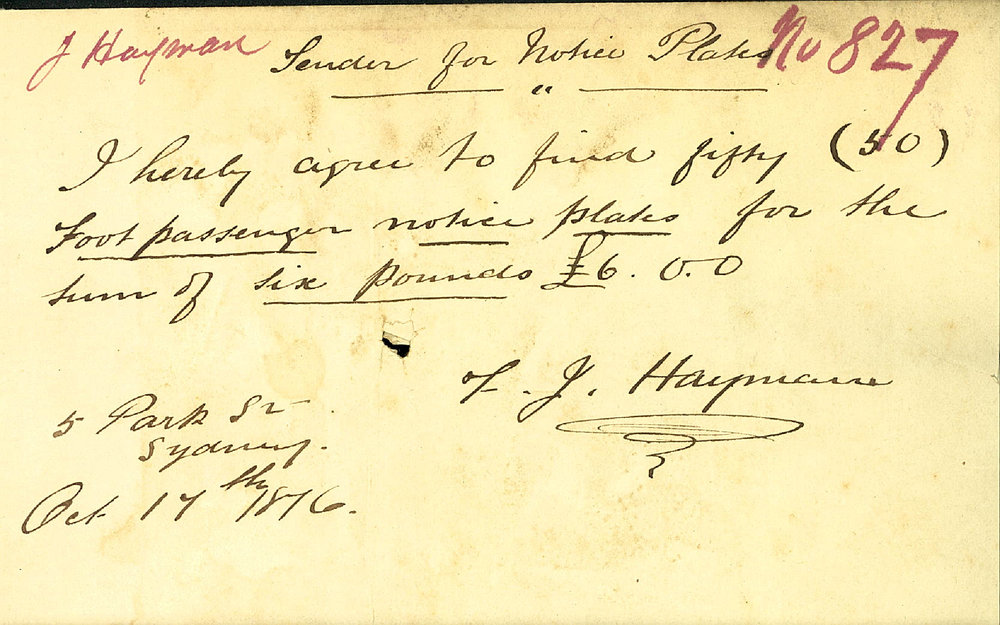 J Hayman
Tender for Notice Plates
No 827
"
I hereby agree to find fifty (50)
Foot passenger notice plates for the
sum of six pounds £6.0.0
J. Hayman
5 Park St
Sydney.
Oct 17th 1876.